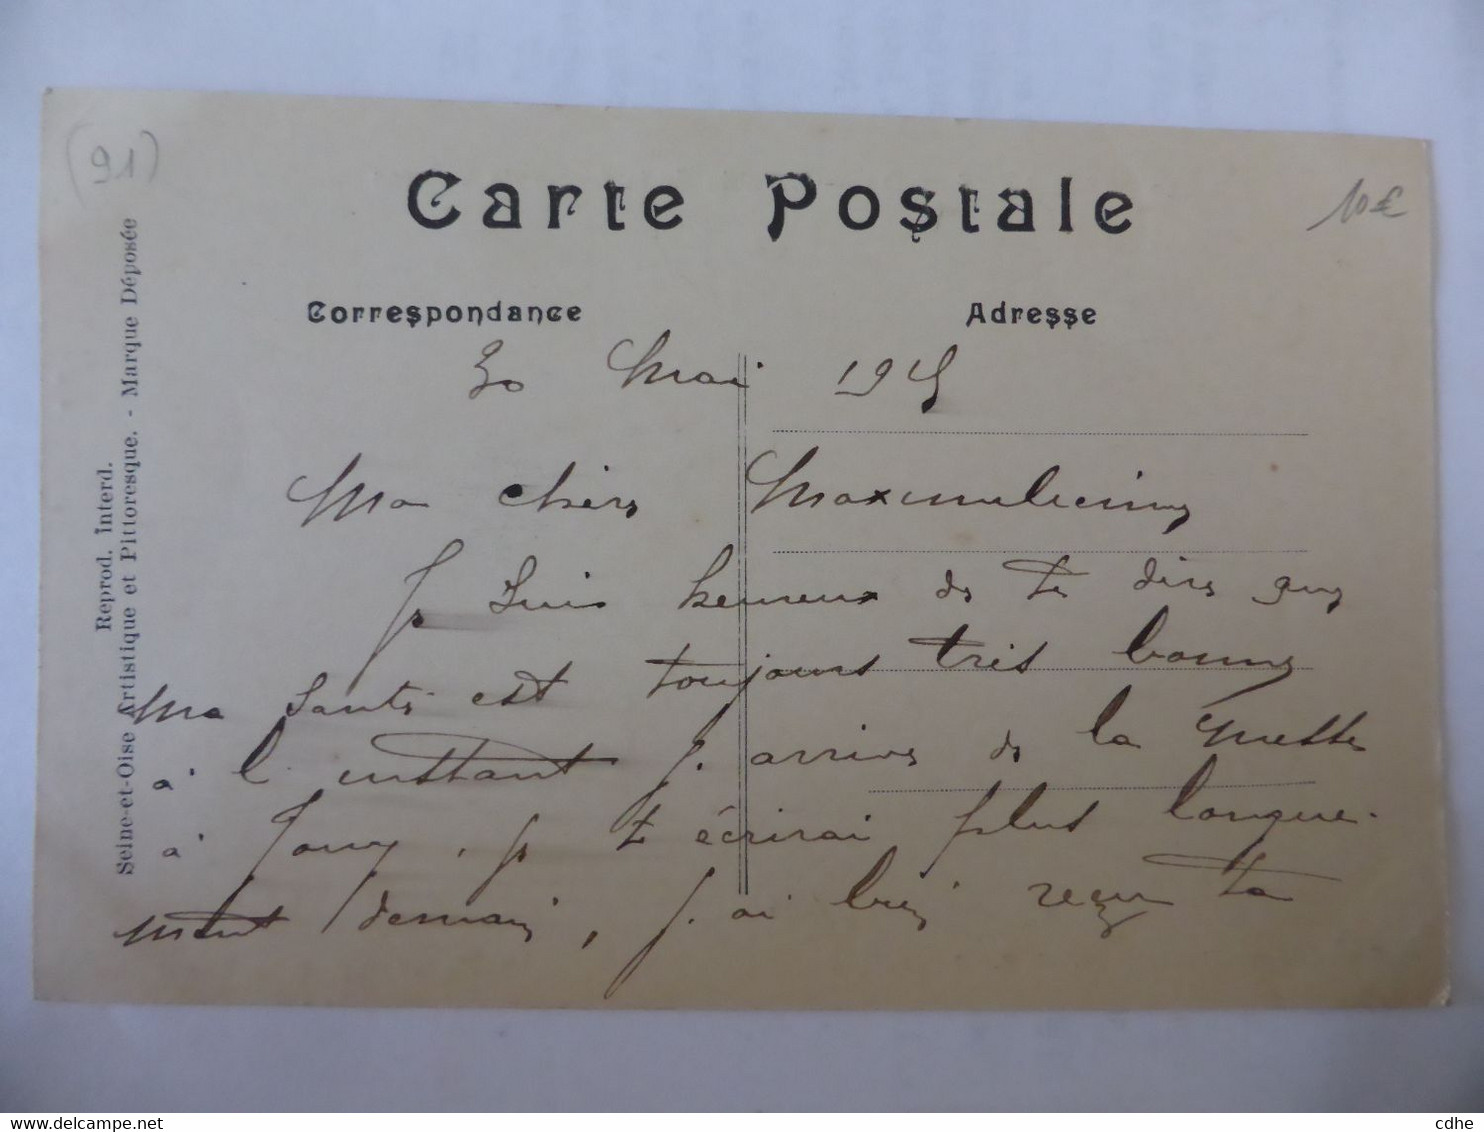 (91)
Carte Postale
10€
Correspondance
Adresse
Reprod. Interd.
Seine-et-Oise Artistique et Pittoresque. - Marque Déposée
30 Mai 1915
Ma chère Maximilienne
Je suis heureux de te dire que
ma santé est toujours très bonne
à l'instant j'arrive de la Messe
à Jouy, je t'écrirai plus longue-
ment demain, j'ai bien reçu ta
cdhe